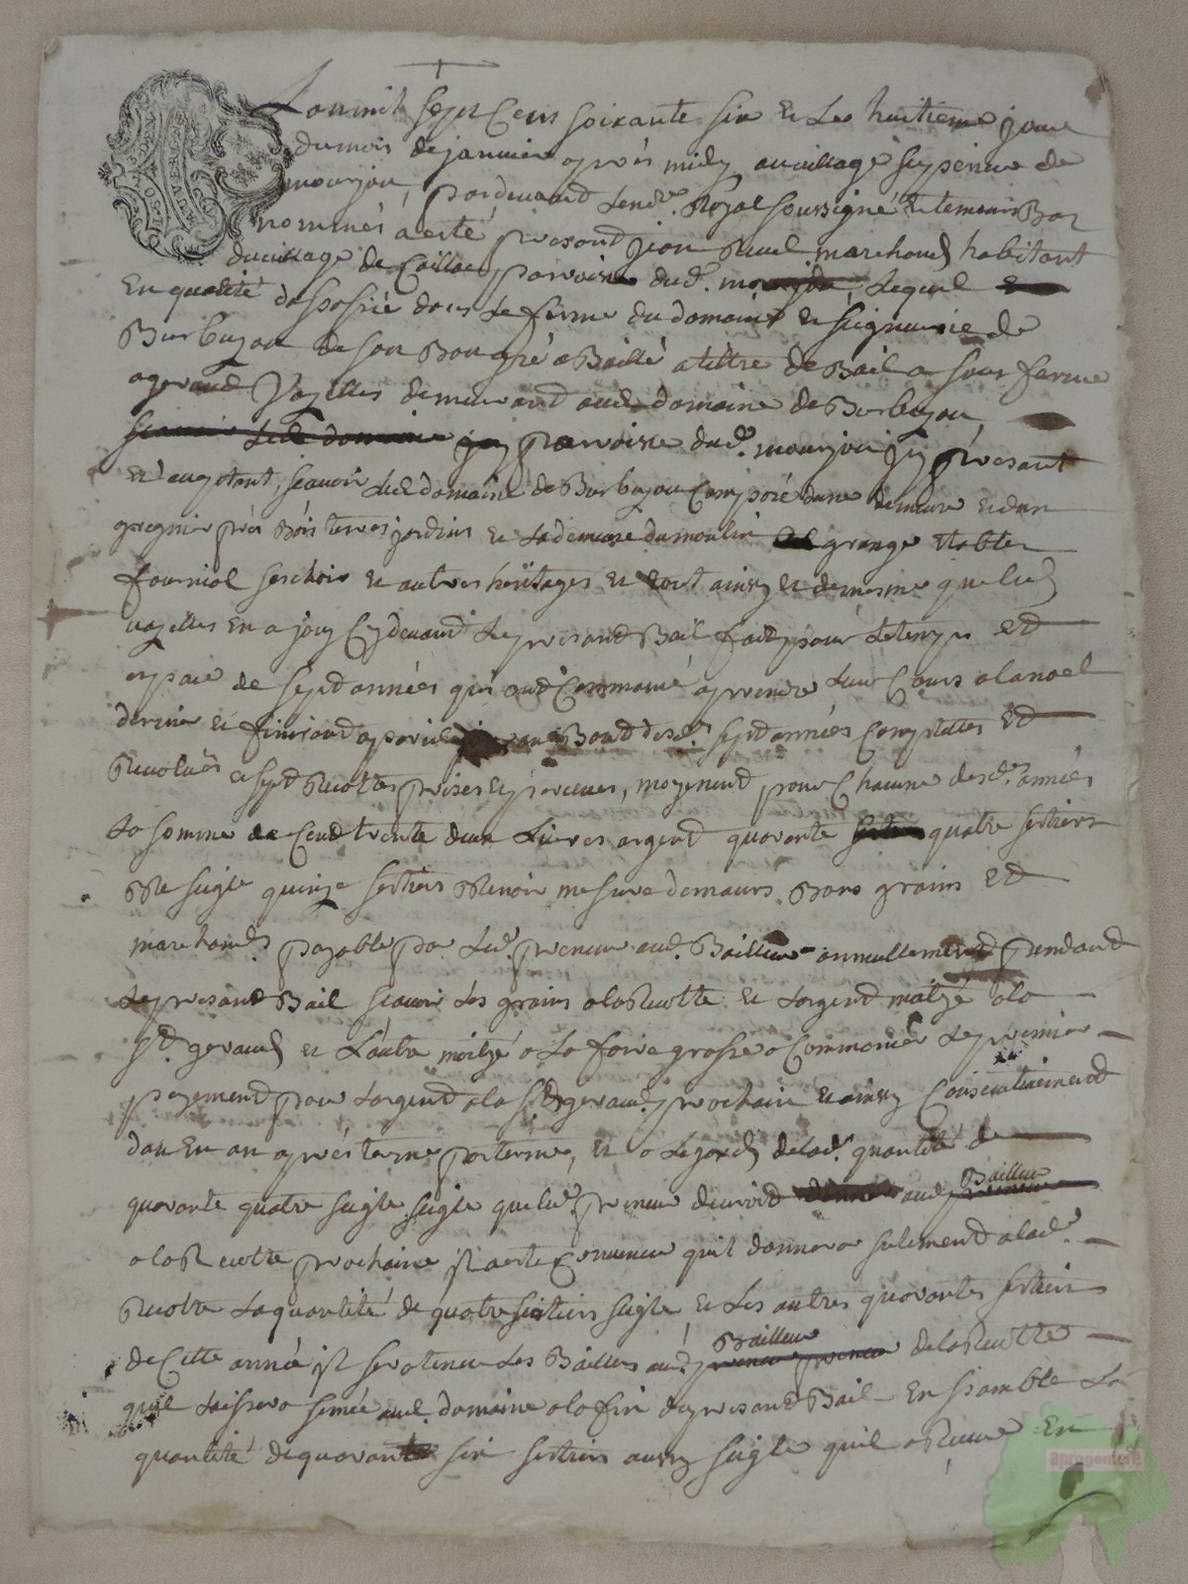 Lan mil sept cens soixante six et le huitieme jour
du mois de janvier apres midy au village superieur de
mourjou, pardevant le no.re Royal soussigné et temoins Bas
nommés a esté present jean marchand habitant
du village de Caillac paroisse dud. mourjou, lequel
En qualité dassossié dans le ferme du domaine et seigneurie de
Burbuzou de son Bon gré a Baillé a tittre de Bail a sous ferme
a geraud Vazelles demeurant aud. domaine de Burbuzou
paroisse dud. mourjou jcy presant
et acceptant, scavoir led domaine de Burbuzou Composé dune demeure et dun
grenier prés Bois terres jardins et la demeure du moulin grange Etables
fourniol sechoir et autres heritages et tout ainsy et demesme que led
vazelles En a jouy Cy devant le presant Bail fait pour le temps et
espace de sept années qui ont Commancé a prendre leur Cours a la noel
derniere et finiront a pareil jour au Bout desd. sept années Complettes Et
Revolues et sept Recoltes prises et perceues, moyenent pour Chacune desd. années
la somme de Cent trente deux Livres argent quarante quatre septiers
Ble seigle quinze septiers Ble noir mesure de maurs Bons grains et
marchands payable par led. preneur aud. Bailleur annuellement pendant
le presant Bail scavoir les grains a la Recolte et Largent moitié a la
St. geraud et L'autre moitié a La foire grasse a Commancer le premier
payement pour Largent a la St. geraud prochain et ainsy Consecutivement
dan En an aprés terme par terme, et a Legard de lad. quantité de
quarante quatre seigle seigle que led. preneur devroit aud. Bailleur
a la Recolte prochaine jl a esté Convenu quil donnera sulement a lad.
Recolte La quantité de quatre septiers seigle et Les autres quarantes septiers
de Cette année jl sera tenu Les Bailler aud. Bailleur de la Recolte
quil Laissera semée aud. domaine a la fin du presant Bail Ensamble La
quantité de quarante six septiers aussy seigle quil a Receue En